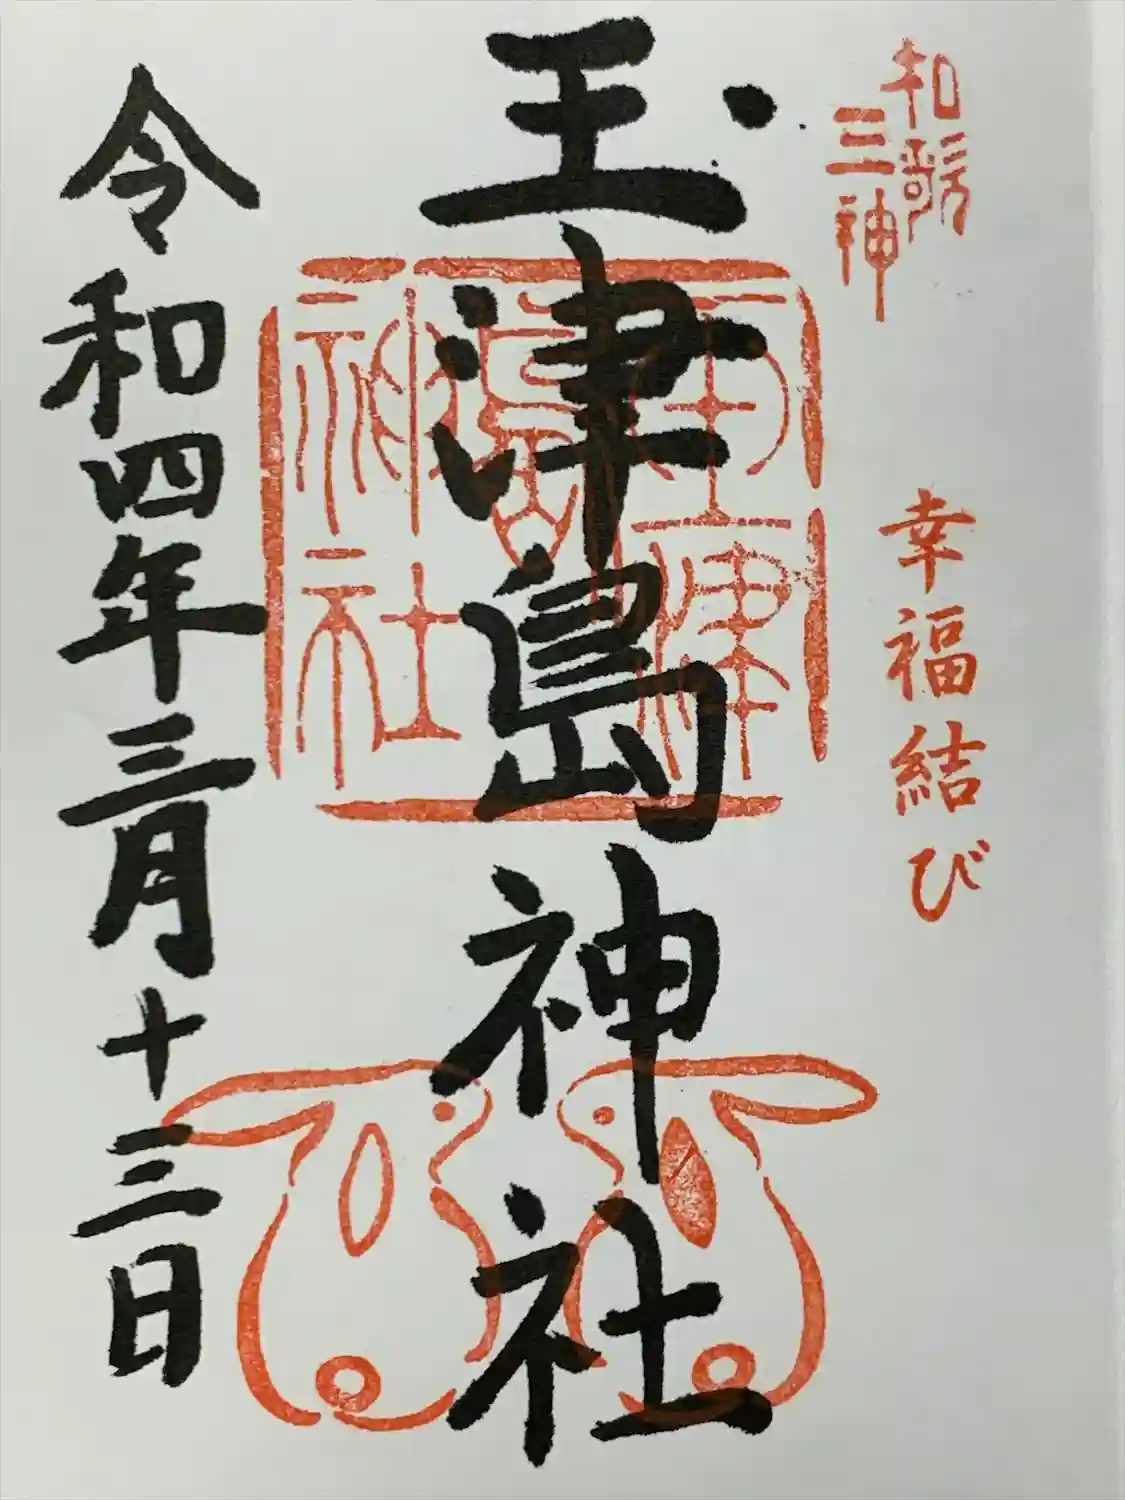 和歌
三神
幸福結び
玉津島神社
玉津
島
神社
令和四年三月十三日